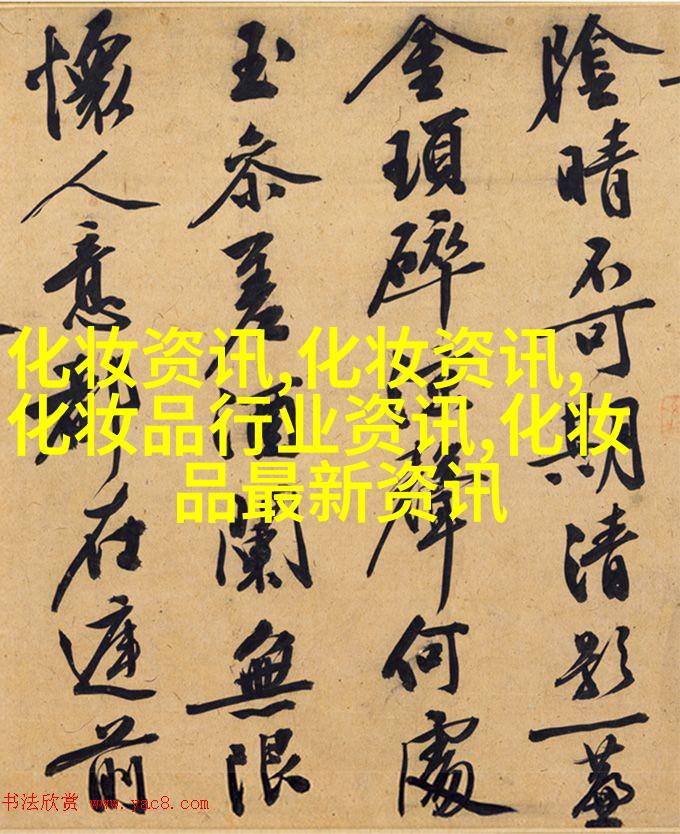 陰晴不可期清影一
金瑣碎聲何處
玉參差闌無限
懷人意都在前
化妆资讯,化妆资讯,
化妆品行业资讯,化妆
品最新资讯
书法欣赏 www.yac8.com